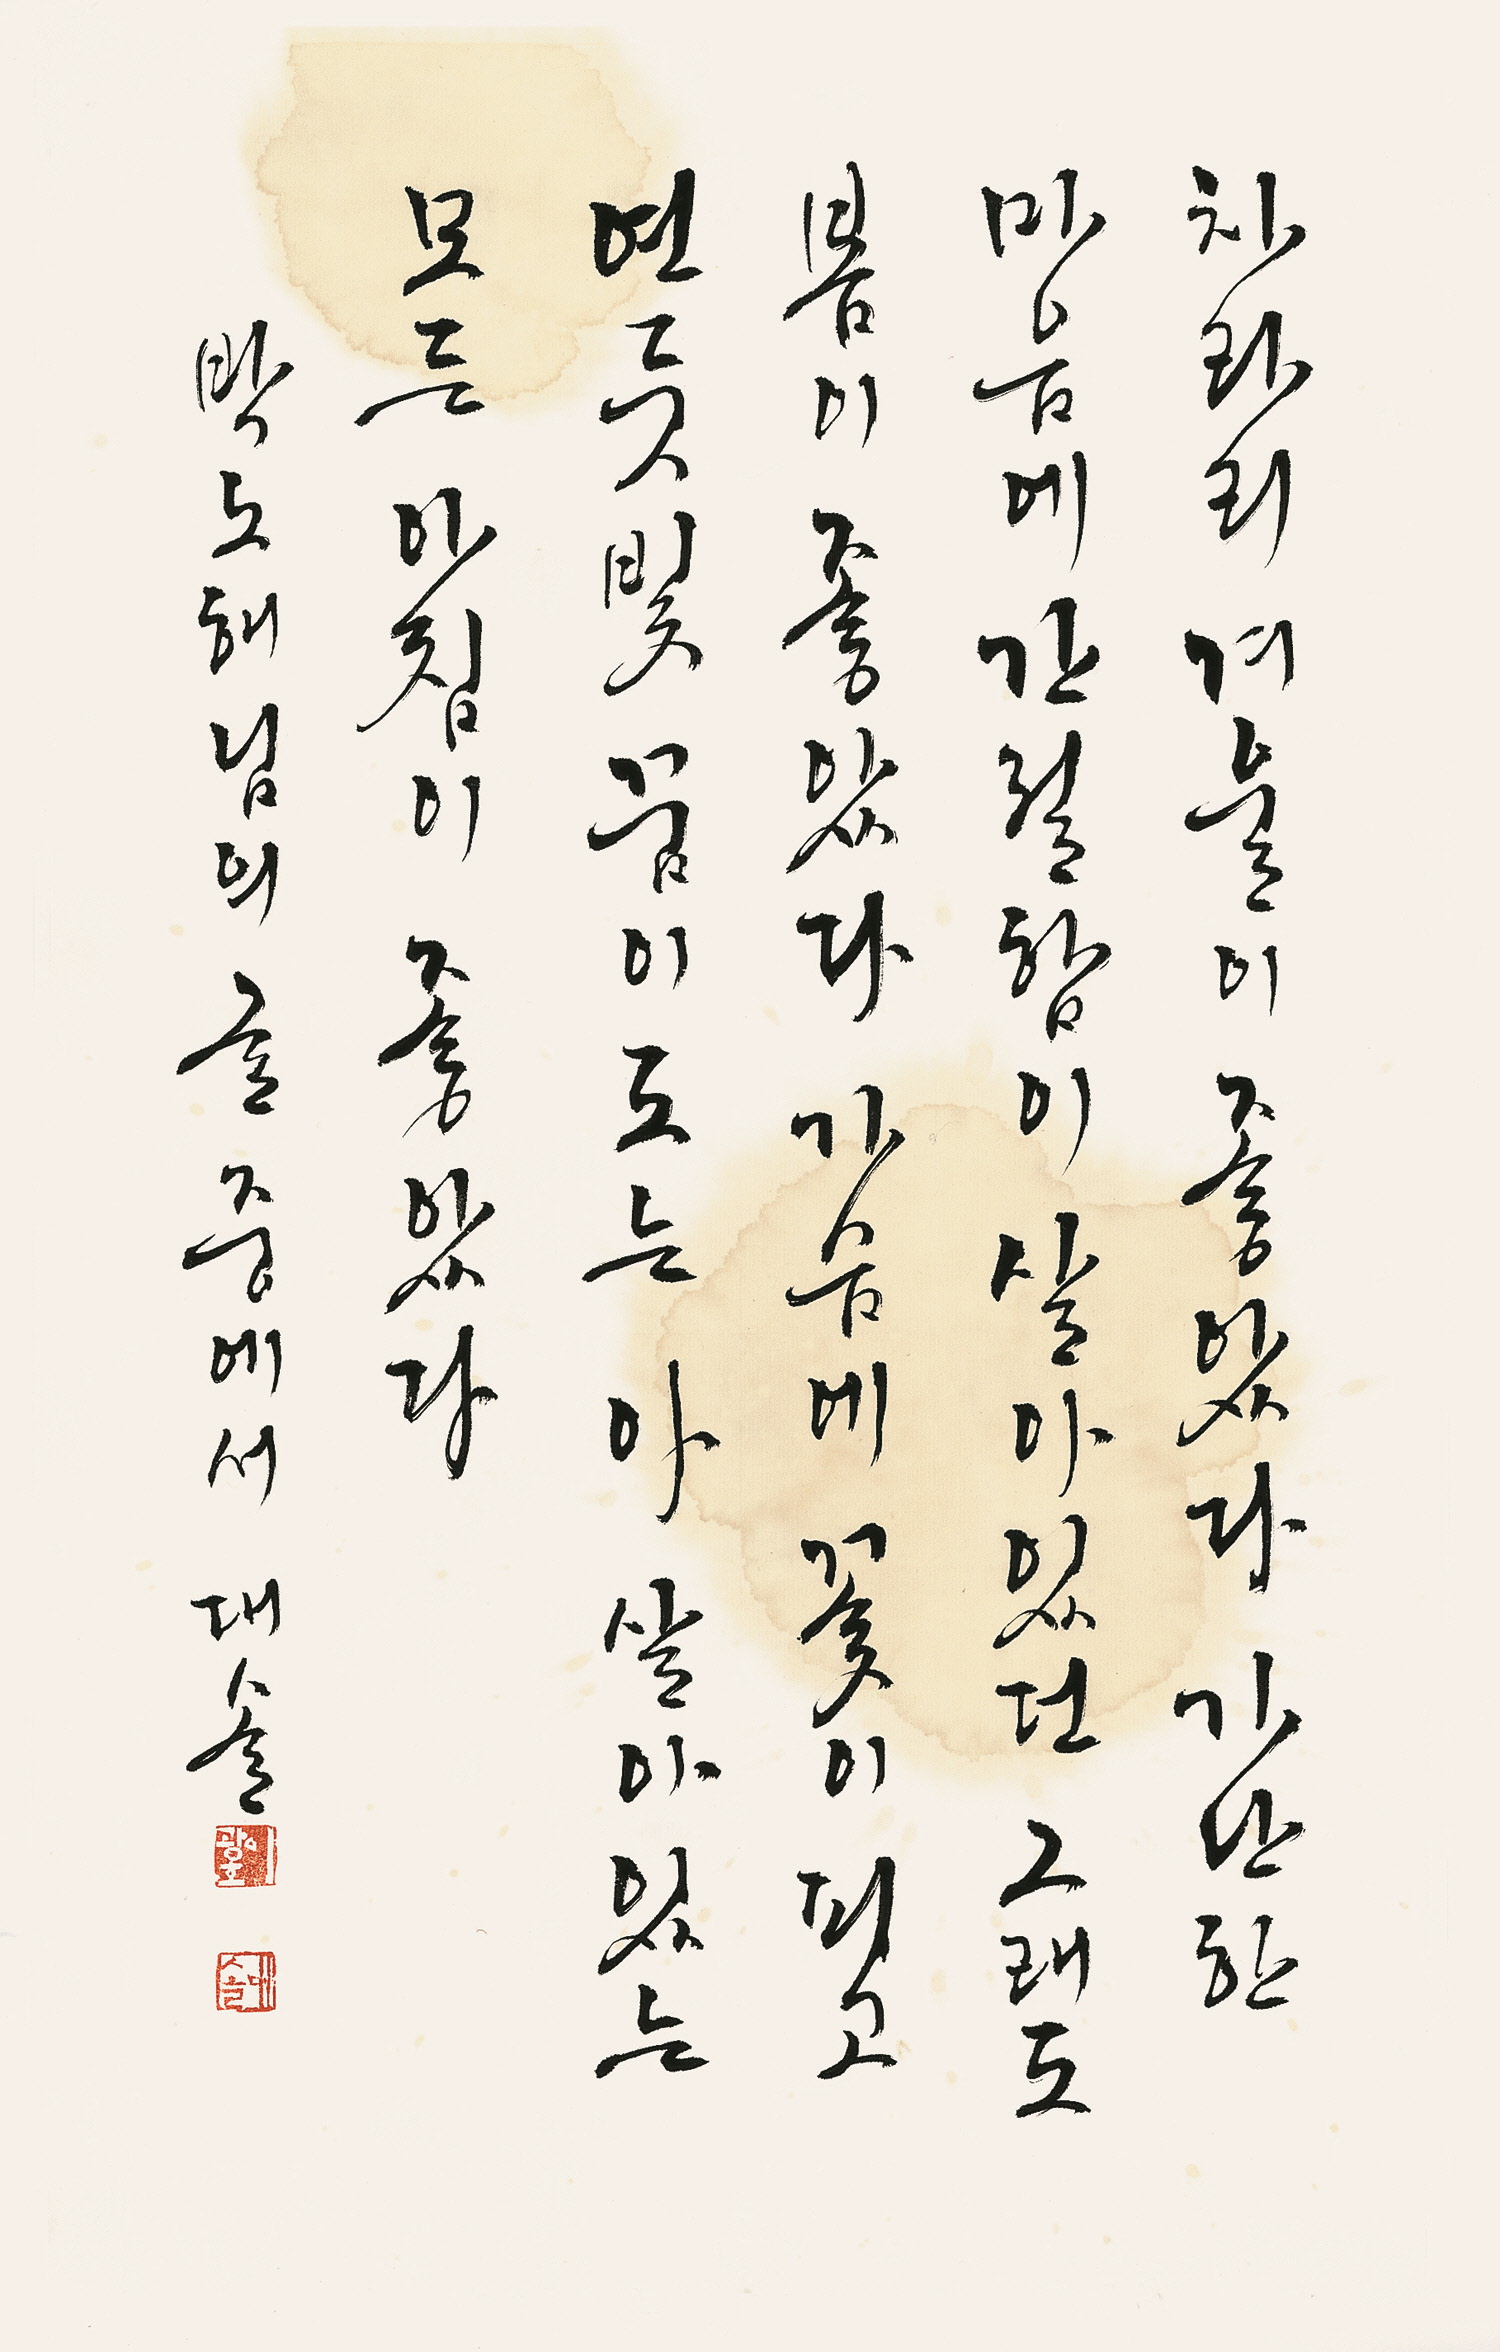 차라리 겨울이 좋았다 가난한
마음에 간절함이 살아있던 그래도
봄이 좋았다 가슴에 꽃이 피고
연듯빛 꿈이 도는 아 살아있는
모든 아침이 좋았다
박노해님의 글 중에서 대솔
이광호
대솔